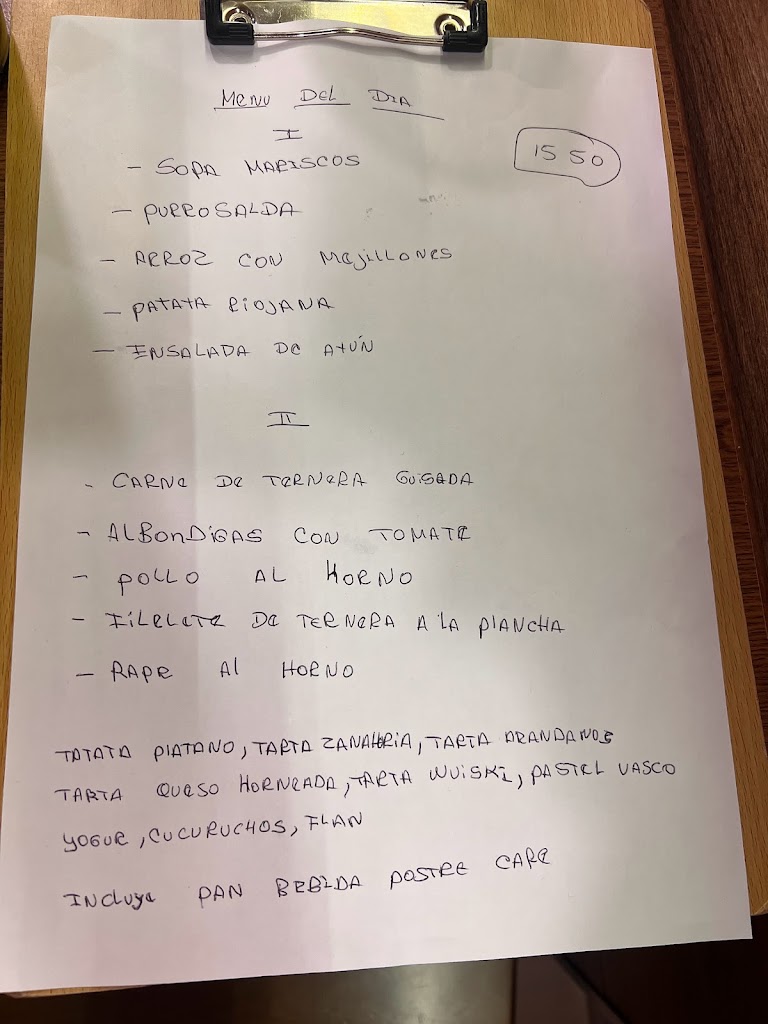 MENU DEL DIA
I
15 50
- SOPA MARISCOS
- PURROSALDA
- ARROZ CON MEJILLONES
- PATATA RIOJANA
- ENSALADA DE ATÚN
II
- CARNE DE TERNERA GUISADA
- ALBONDIGAS CON TOMATE
- POLLO AL HORNO
- FILELETE DE TERNERA A LA PLANCHA
- RAPE AL HORNO
TATATA PLATANO, TARTA ZANAHORIA, TARTA ARANDANOS
TARTA QUESO HORNEADA, TARTA WUISKI, PASTEL VASCO
YOGUR, CUCURUCHOS, FLAN
INCLUYE PAN BEBIDA POSTRE CAFE